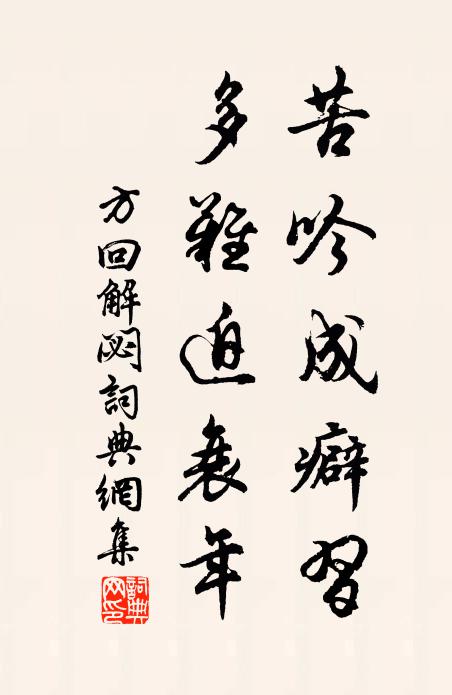 苦吟成癖習
多難迫衰年
方回解悶詞典網集
詞典網印